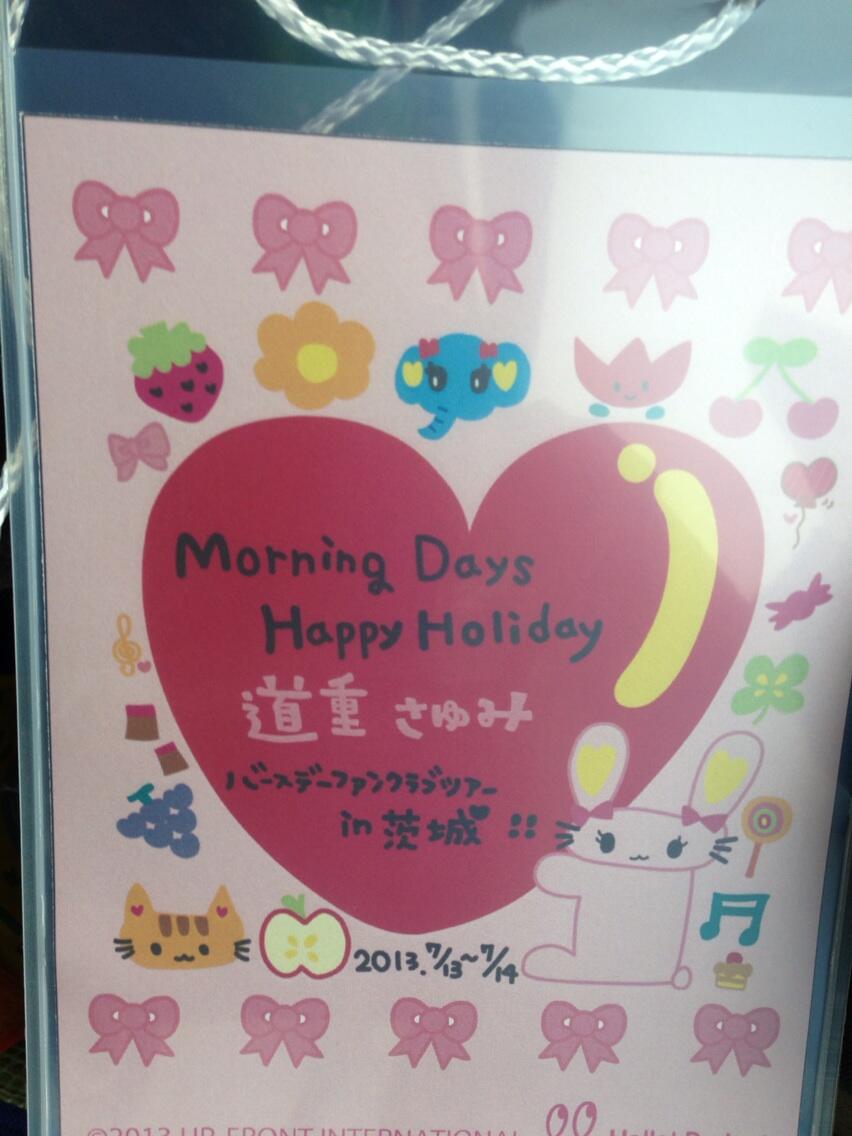 Morning Days
Happy Holiday
道重 さゆみ
バースデーファンクラブツアー
in 茨城♥::
2013. 7/13~7/14
©2013 UP-FRONT INTERNATIONAL
Hello!